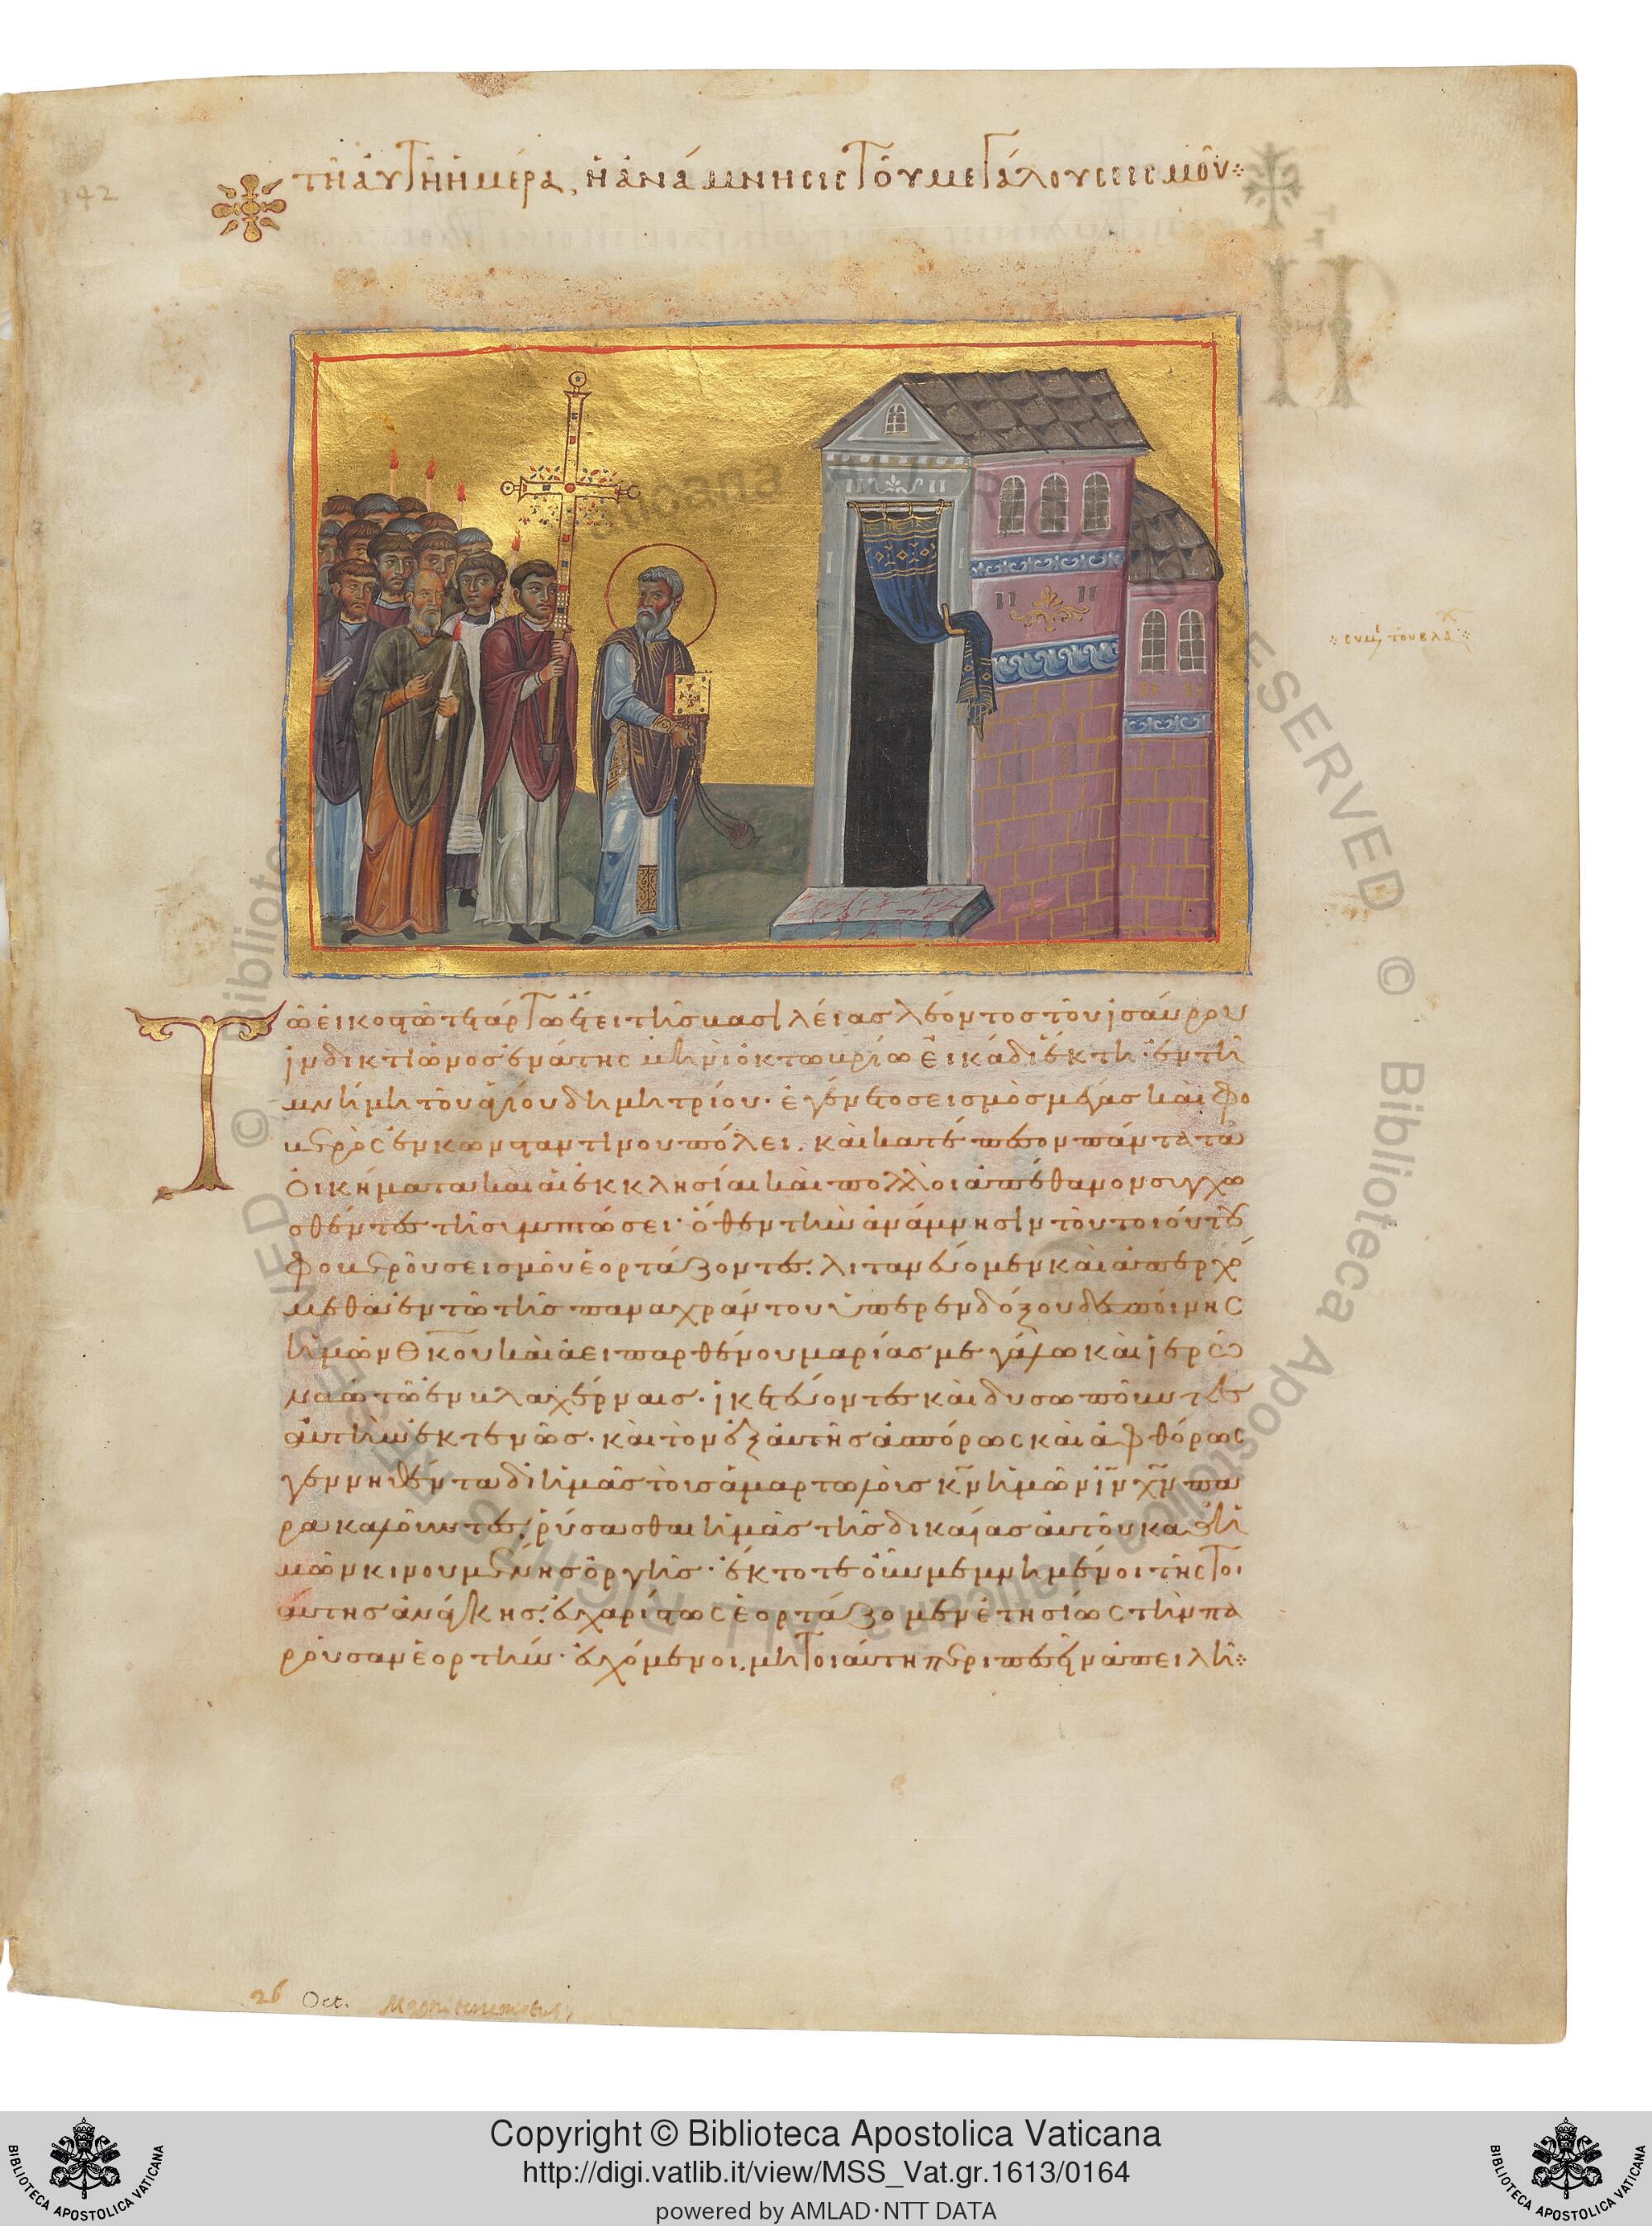 142
τῆ ἀυτῆ ἡμέρα, ἡ ἀνάμνησις τοῦ μεγάλου σεισμοῦ
συμε τοῦ βλαχ
Τῶ εἰκοστῶ τετάρτω ἔτει τῆς βασιλείας λέοντος τοῦ ἰσαύρου
ἰνδικτιῶνος ἐννάτης μηνὶ ὀκτωβρίω εἰκάδι ἕκτη· ἐν τῆ
μνήμη τοῦ ἁγίου δημητρίου· ἐγένετο σεισμὸς μέγας καὶ φο
βερὸς ἐν κωνσταντίνου πόλει. καὶ κατέπεσον πάντα τὰ
ὀικήματα καὶ αἱ ἐκκλησίαι καὶ πολλοὶ ἀπέθανον συγχω
σθέντες τῆ συμπτώσει· ὅθεν τὴν ἀνάμνησιν τοῦ τοιούτου
φοβεροῦ σεισμοῦ ἑορτάζοντες. λιτανεύομεν καὶ ἀπερχό
μεθα ἐν τῶ τῆς παναχράντου ὑπερενδόξου δεσποίνης
ἡμῶν Θκου καὶ ἀειπαρθένου μαρίας μεγάλω καὶ ἱερῶ
ναῶ τῶ ἐν βλαχέρναις· ἱκετεύοντες καὶ δυσωποῦντες
ἀυτὴν ἐκτενῶς· καὶ τὸν ἐξ ἀυτῆς ἀσπόρως καὶ ἀφθόρως
γεννηθέντα δι ἡμᾶς τοὺς ἁμαρτωλοὺς κν ἡμῶν ιν χν πα
ρακαλοῦντες, ῥύσασθαι ἡμᾶς τῆς δικαίας ἀυτοῦ καθ ἡ
μῶν κινουμένης ὀργῆς· ἔκτοτε οὖν μεμνημένοι τῆς τοι
άυτης ἀνάγκης. ἐυχαρίστως ἑορτάζομεν ἐτησίως τὴν πα
ροῦσαν ἑορτήν· ἐυχόμενοι. μὴ τοιάυτη περιπεσεῖν ἀπειλῆ
26 Oct. Magni terremotus
© Biblioteca Apostolica Vaticana ALL RIGHTS RESERVED © Biblioteca Apostolica Vaticana ALL RIGHTS RESERVED
Copyright © Biblioteca Apostolica Vaticana
http://digi.vatlib.it/view/MSS_Vat.gr.1613/0164
powered by AMLAD·NTT DATA
BIBLIOTECA APOSTOLICA VATICANA
BIBLIOTECA APOSTOLICA VATICANA